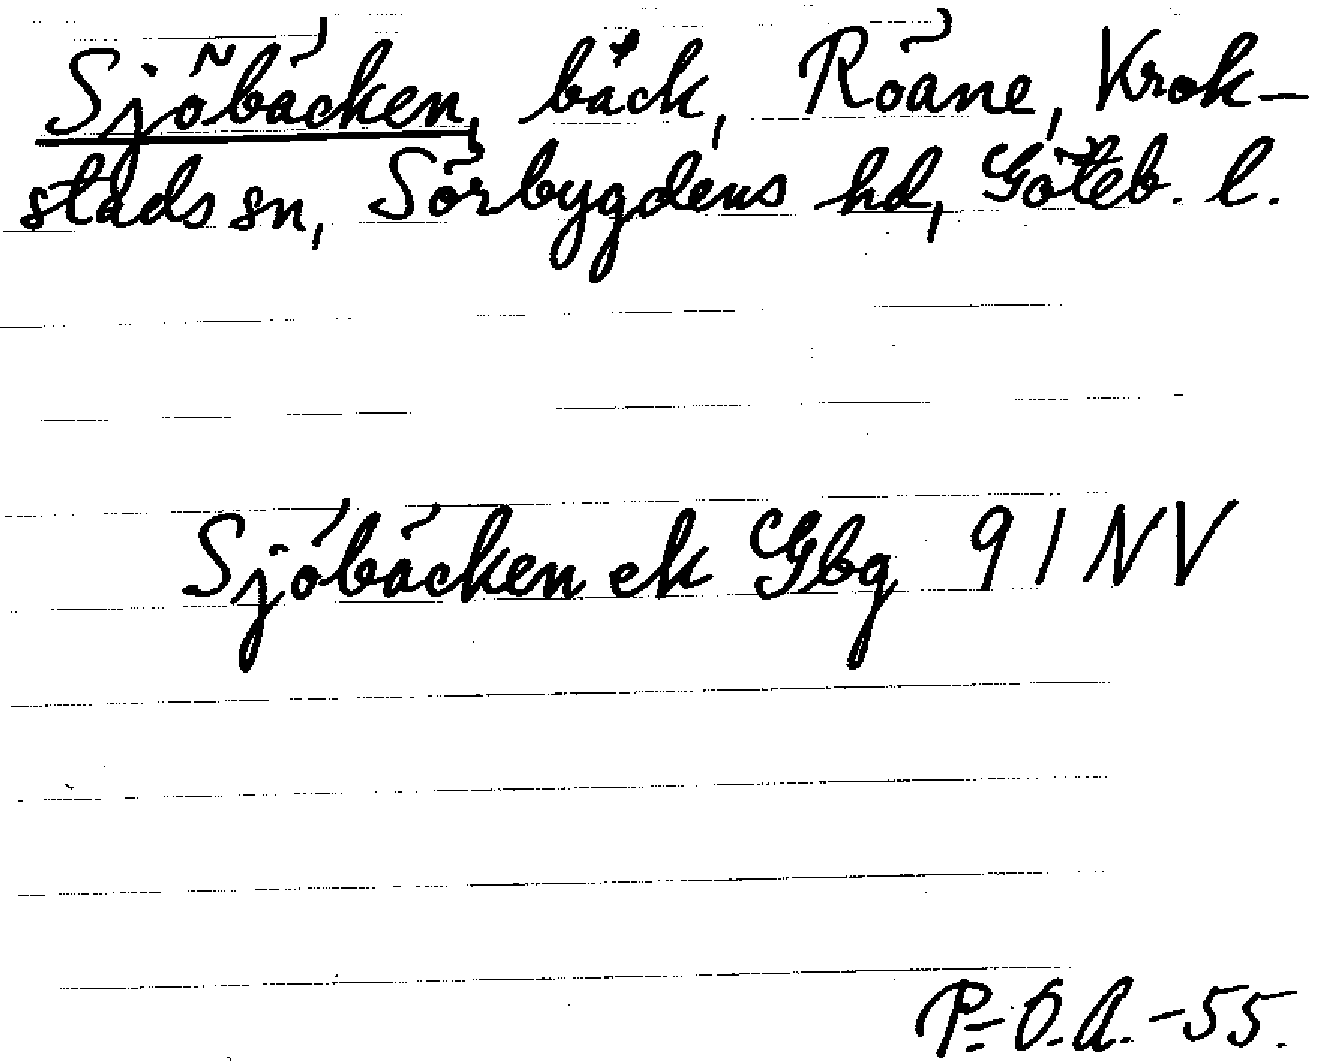 Sjöbäcken, bäck, Röane, Krok-
stads sn, Sörbygdens hd, Göteb. l.
Sjöbäcken ek Gbg 91 NV
P-O.A. -55.